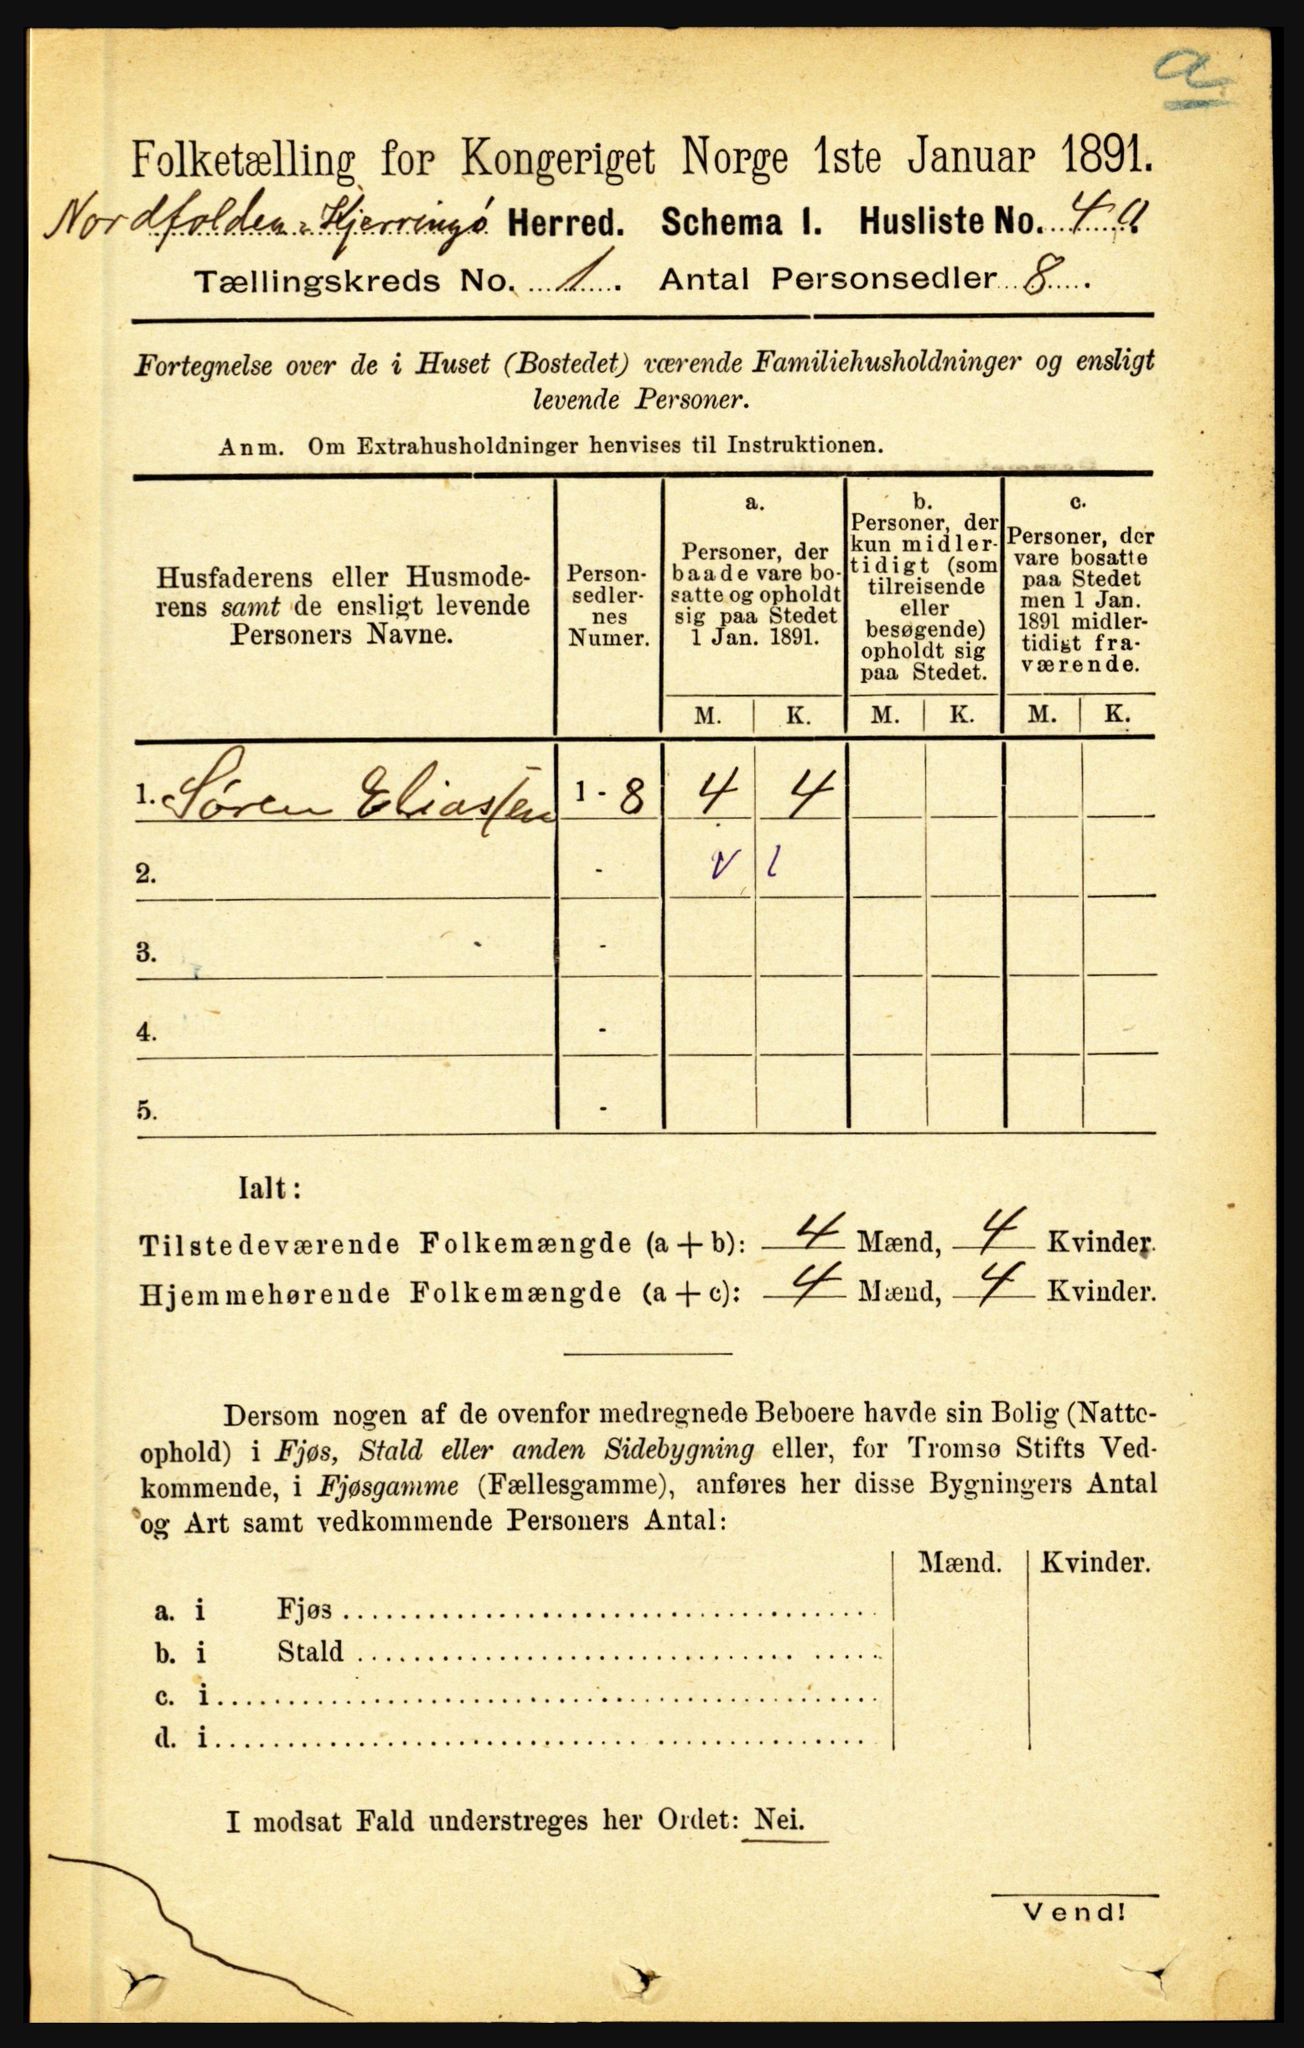 a
Folketælling for Kongeriget Norge 1ste Januar 1891.
Nordfolden-Kjerringø Herred. Schema I. Husliste No. 4 a
Tællingskreds No. 1. Antal Personsedler 8.
Fortegnelse over de i Huset (Bostedet) værende Familiehusholdninger og ensligt
levende Personer.
Anm. Om Extrahusholdninger henvises til Instruktionen.
Husfaderens eller Husmode-
rens samt de ensligt levende
Personers Navne.
Person-
sedler-
nes
Numer.
a.
Personer, der
baade vare bo-
satte og opholdt
sig paa Stedet
1 Jan. 1891.
b.
Personer, der
kun midler-
tidigt (som
tilreisende
eller
besøgende)
opholdt sig
paa Stedet.
c.
Personer, der
vare bosatte
paa Stedet
men 1 Jan.
1891 midler-
tidigt fra-
værende.
M. K. M. K. M. K.
1. Søren Eliassen 1 - 8 4 4
2. -
3. -
4. -
5. -
Ialt:
Tilstedeværende Folkemængde (a + b): 4 Mænd, 4 Kvinder.
Hjemmehørende Folkemængde (a + c): 4 Mænd, 4 Kvinder.
Dersom nogen af de ovenfor medregnede Beboere havde sin Bolig (Natte-
ophold) i Fjøs, Stald eller anden Sidebygning eller, for Tromsø Stifts Ved-
kommende, i Fjøsgamme (Fællesgamme), anføres her disse Bygningers Antal
og Art samt vedkommende Personers Antal:
Mænd. Kvinder.
a. i Fjøs
b. i Stald
c. i
d. i
I modsat Fald understreges her Ordet: Nei.
Vend!